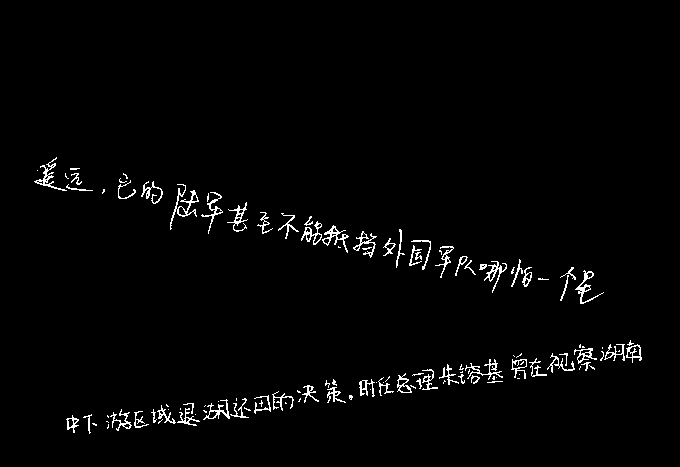 遥远,它的陆军甚至不能抵挡外国军队哪怕一个星
中下游区域退湖还田的决策。时任总理朱镕基曾在视察湖南